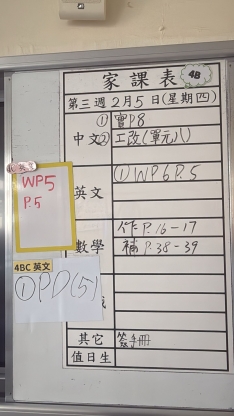 家課表 4B
第三週2月5日(星期四)
中文 ①實P8
②工改(單元八)
英文 ①WP6 P.5
WP5
P.5
數學 作P.16-17
補P.38-39
4BC 英文
①PD(5)
其它 簽手冊
值日生